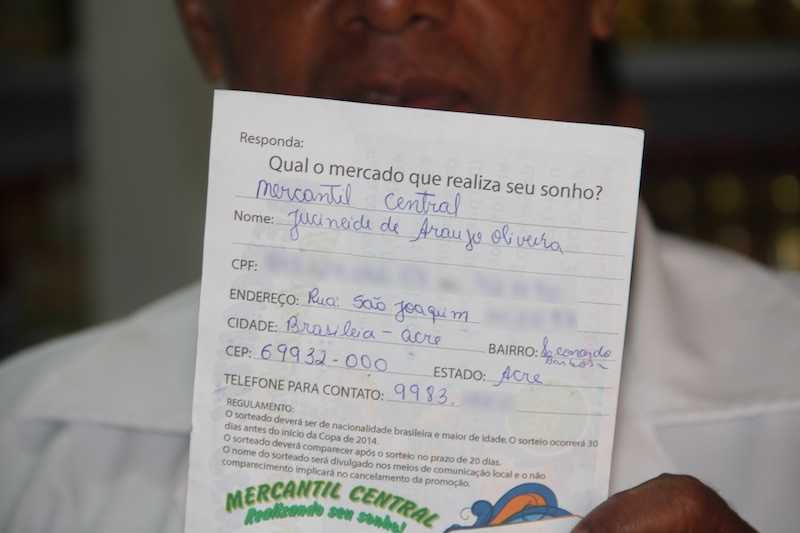 Responda:
Qual o mercado que realiza seu sonho?
Mercantil Central
Nome: Jucineide de Araujo Oliveira
CPF:
ENDEREÇO: Rua: São Joaquim
CIDADE: Brasileia - acre BAIRRO: Leonardo Barbosa
CEP: 69932-000 ESTADO: Acre
TELEFONE PARA CONTATO: 9983.
REGULAMENTO:
O sorteado deverá ser de nacionalidade brasileira e maior de idade. O sorteio ocorrerá 30
dias antes do início da Copa de 2014.
O sorteado deverá comparecer após o sorteio no prazo de 20 dias.
O nome do sorteado será divulgado nos meios de comunicação local e o não
comparecimento implicará no cancelamento da promoção.
MERCANTIL CENTRAL
Realizando seu sonho!